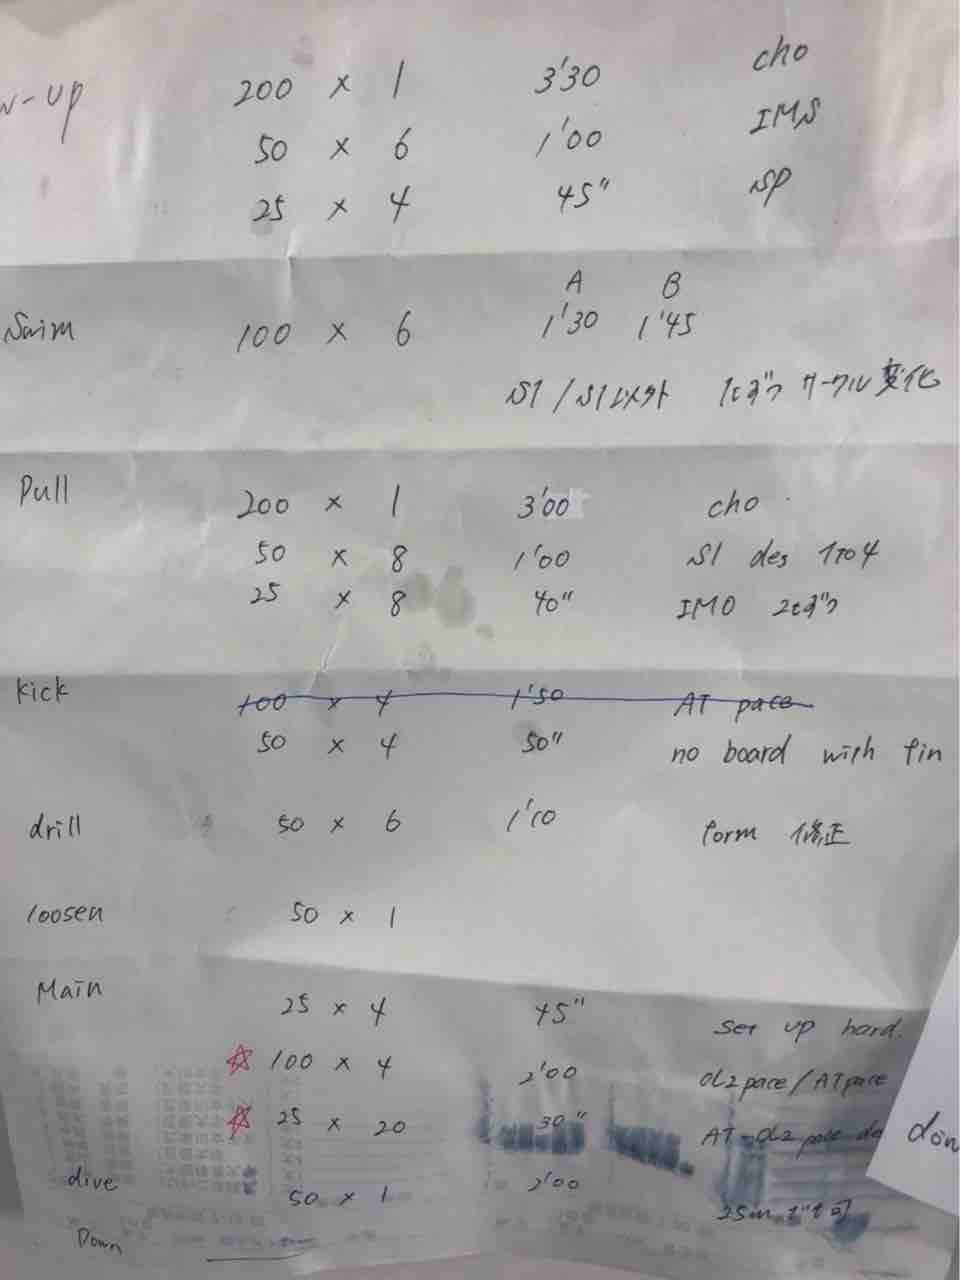 w-up 200 × 1 3'30 cho
50 × 6 1'00 IMS
25 × 4 45" SP
A B
Swim 100 × 6 1'30 1'45
S1 / S1以外 1tずつ サークル変化
Pull 200 × 1 3'00 cho
50 × 8 1'00 S1 des 1to4
25 × 8 40" IMO 2tずつ
kick 100 × 4 1'50 AT pace
50 × 4 50" no board with fin
drill 50 × 6 1'10 form 修正
loosen 50 × 1
Main 25 × 4 45" set up hard.
☆ 100 × 4 2'00 OL2 pace / AT pace
☆ 25 × 20 30" AT-OL2 pace de
don
dive 50 × 1 2'00 25mでも可
Down